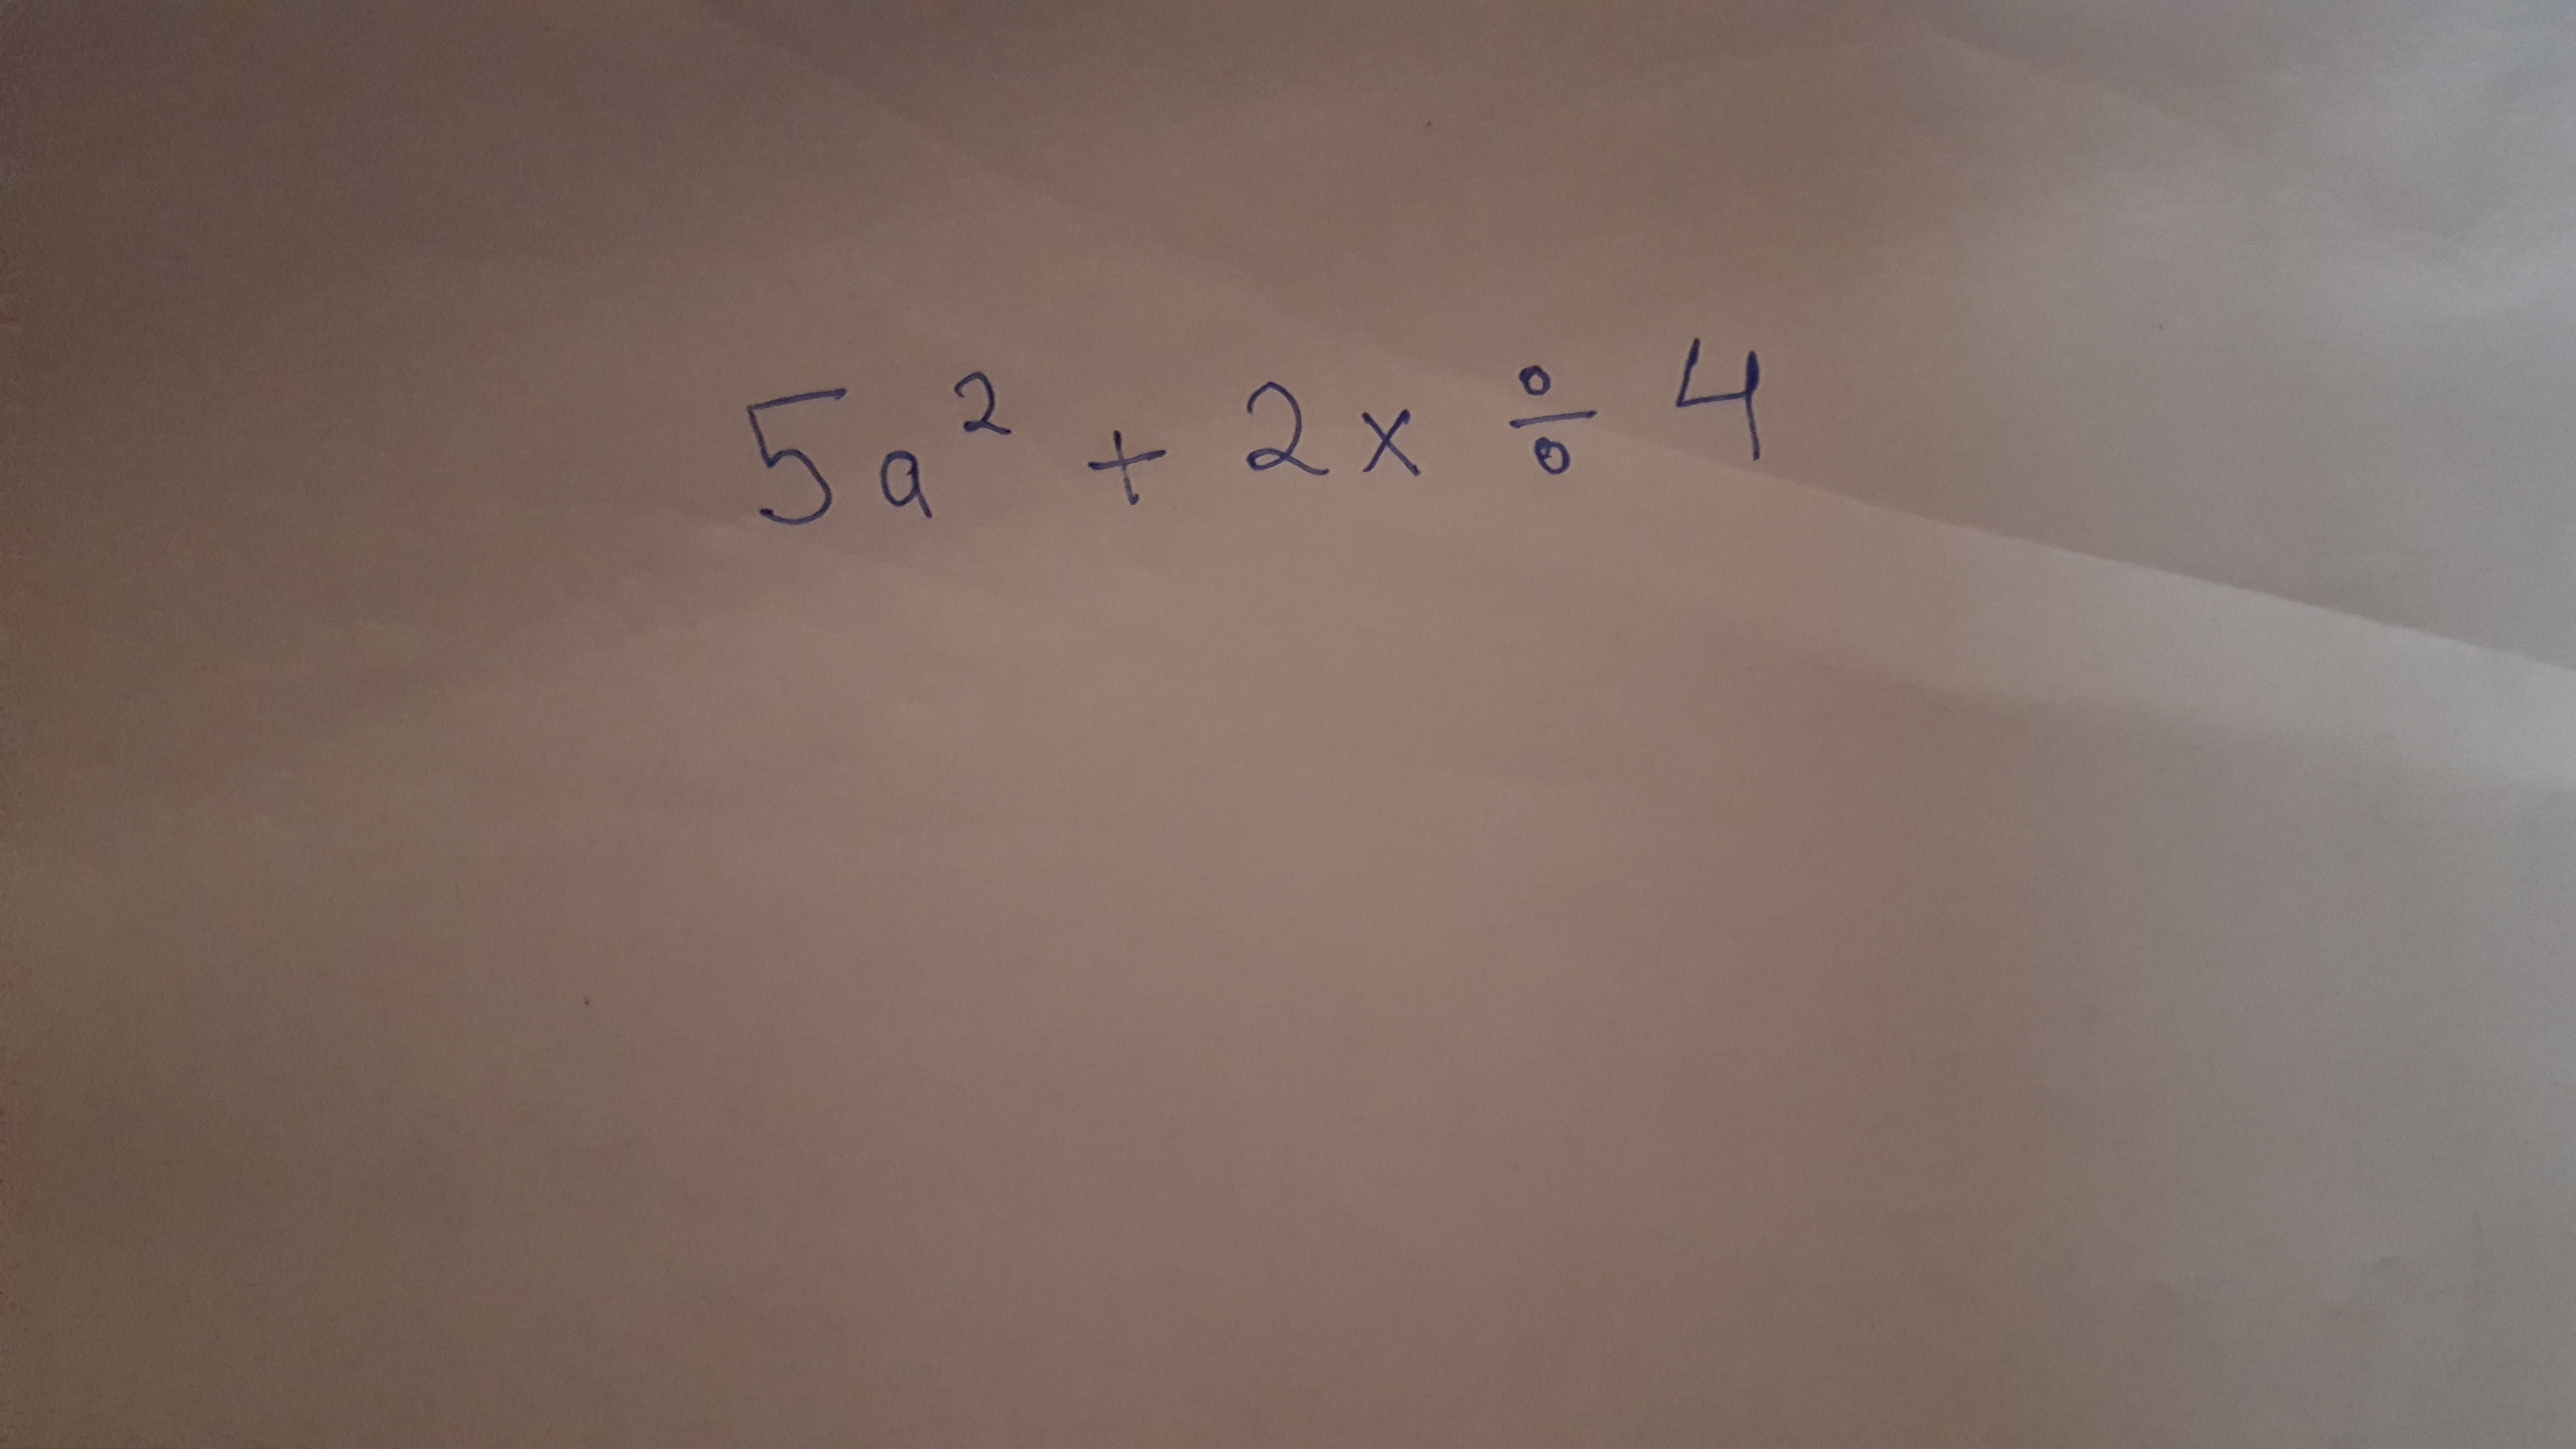 5a² + 2x ÷ 4